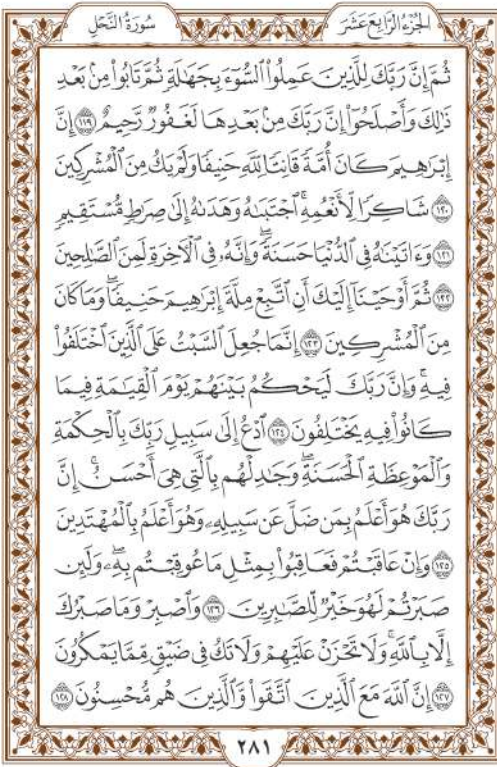 سُورَةُ النَّحْلِ
الجُزْءُ الرَّابِعَ عَشَرَ
ثُمَّ إِنَّ رَبَّكَ لِلَّذِينَ عَمِلُوا۟ ٱلسُّوٓءَ بِجَهَٰلَةٖ ثُمَّ تَابُوا۟ مِنۢ بَعۡدِ
ذَٰلِكَ وَأَصۡلَحُوٓا۟ إِنَّ رَبَّكَ مِنۢ بَعۡدِهَا لَغَفُورٞ رَّحِيمٌ ١١٩ إِنَّ
إِبۡرَٰهِيمَ كَانَ أُمَّةٗ قَانِتٗا لِّلَّهِ حَنِيفٗا وَلَمۡ يَكُ مِنَ ٱلۡمُشۡرِكِينَ
١٢٠ شَاكِرٗا لِّأَنۡعُمِهِۚ ٱجۡتَبَىٰهُ وَهَدَىٰهُ إِلَىٰ صِرَٰطٖ مُّسۡتَقِيمٖ
١٢١ وَءَاتَيۡنَٰهُ فِي ٱلدُّنۡيَا حَسَنَةٗۖ وَإِنَّهُۥ فِي ٱلۡأٓخِرَةِ لَمِنَ ٱلصَّٰلِحِينَ
١٢٢ ثُمَّ أَوۡحَيۡنَآ إِلَيۡكَ أَنِ ٱتَّبِعۡ مِلَّةَ إِبۡرَٰهِيمَ حَنِيفٗاۖ وَمَا كَانَ
مِنَ ٱلۡمُشۡرِكِينَ ١٢٣ إِنَّمَا جُعِلَ ٱلسَّبۡتُ عَلَى ٱلَّذِينَ ٱخۡتَلَفُوا۟
فِيهِۚ وَإِنَّ رَبَّكَ لَيَحۡكُمُ بَيۡنَهُمۡ يَوۡمَ ٱلۡقِيَٰمَةِ فِيمَا
كَانُوا۟ فِيهِ يَخۡتَلِفُونَ ١٢٤ ٱدۡعُ إِلَىٰ سَبِيلِ رَبِّكَ بِٱلۡحِكۡمَةِ
وَٱلۡمَوۡعِظَةِ ٱلۡحَسَنَةِۖ وَجَٰدِلۡهُم بِٱلَّتِي هِيَ أَحۡسَنُۚ إِنَّ
رَبَّكَ هُوَ أَعۡلَمُ بِمَن ضَلَّ عَن سَبِيلِهِۦ وَهُوَ أَعۡلَمُ بِٱلۡمُهۡتَدِينَ
١٢٥ وَإِنۡ عَاقَبۡتُمۡ فَعَاقِبُوا۟ بِمِثۡلِ مَا عُوقِبۡتُم بِهِۦۖ وَلَئِن
صَبَرۡتُمۡ لَهُوَ خَيۡرٞ لِّلصَّٰبِرِينَ ١٢٦ وَٱصۡبِرۡ وَمَا صَبۡرُكَ
إِلَّا بِٱللَّهِۚ وَلَا تَحۡزَنۡ عَلَيۡهِمۡ وَلَا تَكُ فِي ضَيۡقٖ مِّمَّا يَمۡكُرُونَ
١٢٧ إِنَّ ٱللَّهَ مَعَ ٱلَّذِينَ ٱتَّقَوا۟ وَّٱلَّذِينَ هُم مُّحۡسِنُونَ ١٢٨
٢٨١